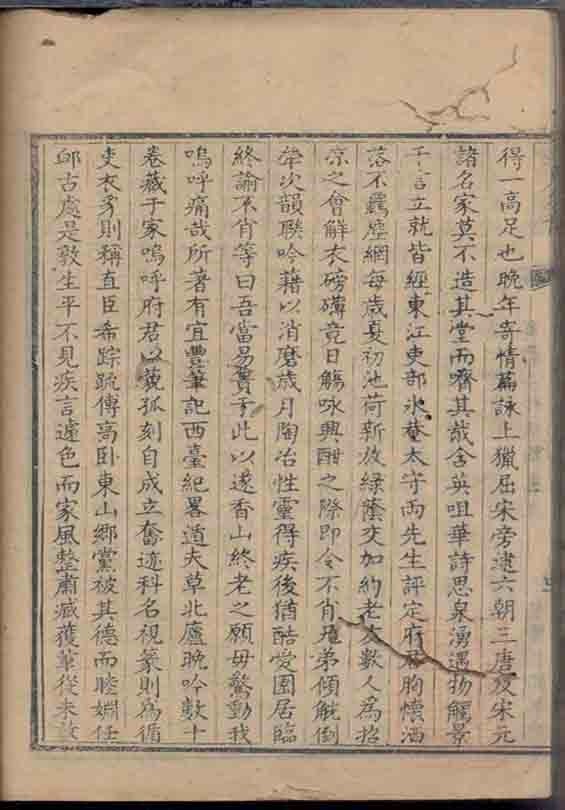 得一高足也晚年寄情篇詠上獵屈宋旁逮六朝三唐及宋元
諸名家莫不造其堂而嚌其胾含英咀華詩思泉湧遇物觸景
千言立就皆經東江吏部氷菴太守兩先生評定府君胸懷洒
落不羈塵網每歲夏初池荷新放綠蔭交加約老友數人為招
凉之會解衣磅礴竟日觴咏興酣之際即令不肖 弟傾觥倒
犖次韻聯吟藉以消磨歲月陶冶性靈得疾後猶酷愛園居臨
終諭不肖等曰吾當易簀于此以遂香山終老之願毋驚動我
嗚呼痛哉所著有宜豐筆記西臺紀畧遁夫草北廬晚吟數十
卷藏于家嗚呼府君以藐孤刻自成立奮迹科名視篆則為循
吏衣豸則稱直臣希踪疏傅高卧東山鄉黨被其德而睦婣任
邱古處是敦生平不見疾言遽色而家風整肅臧獲輩從未敢